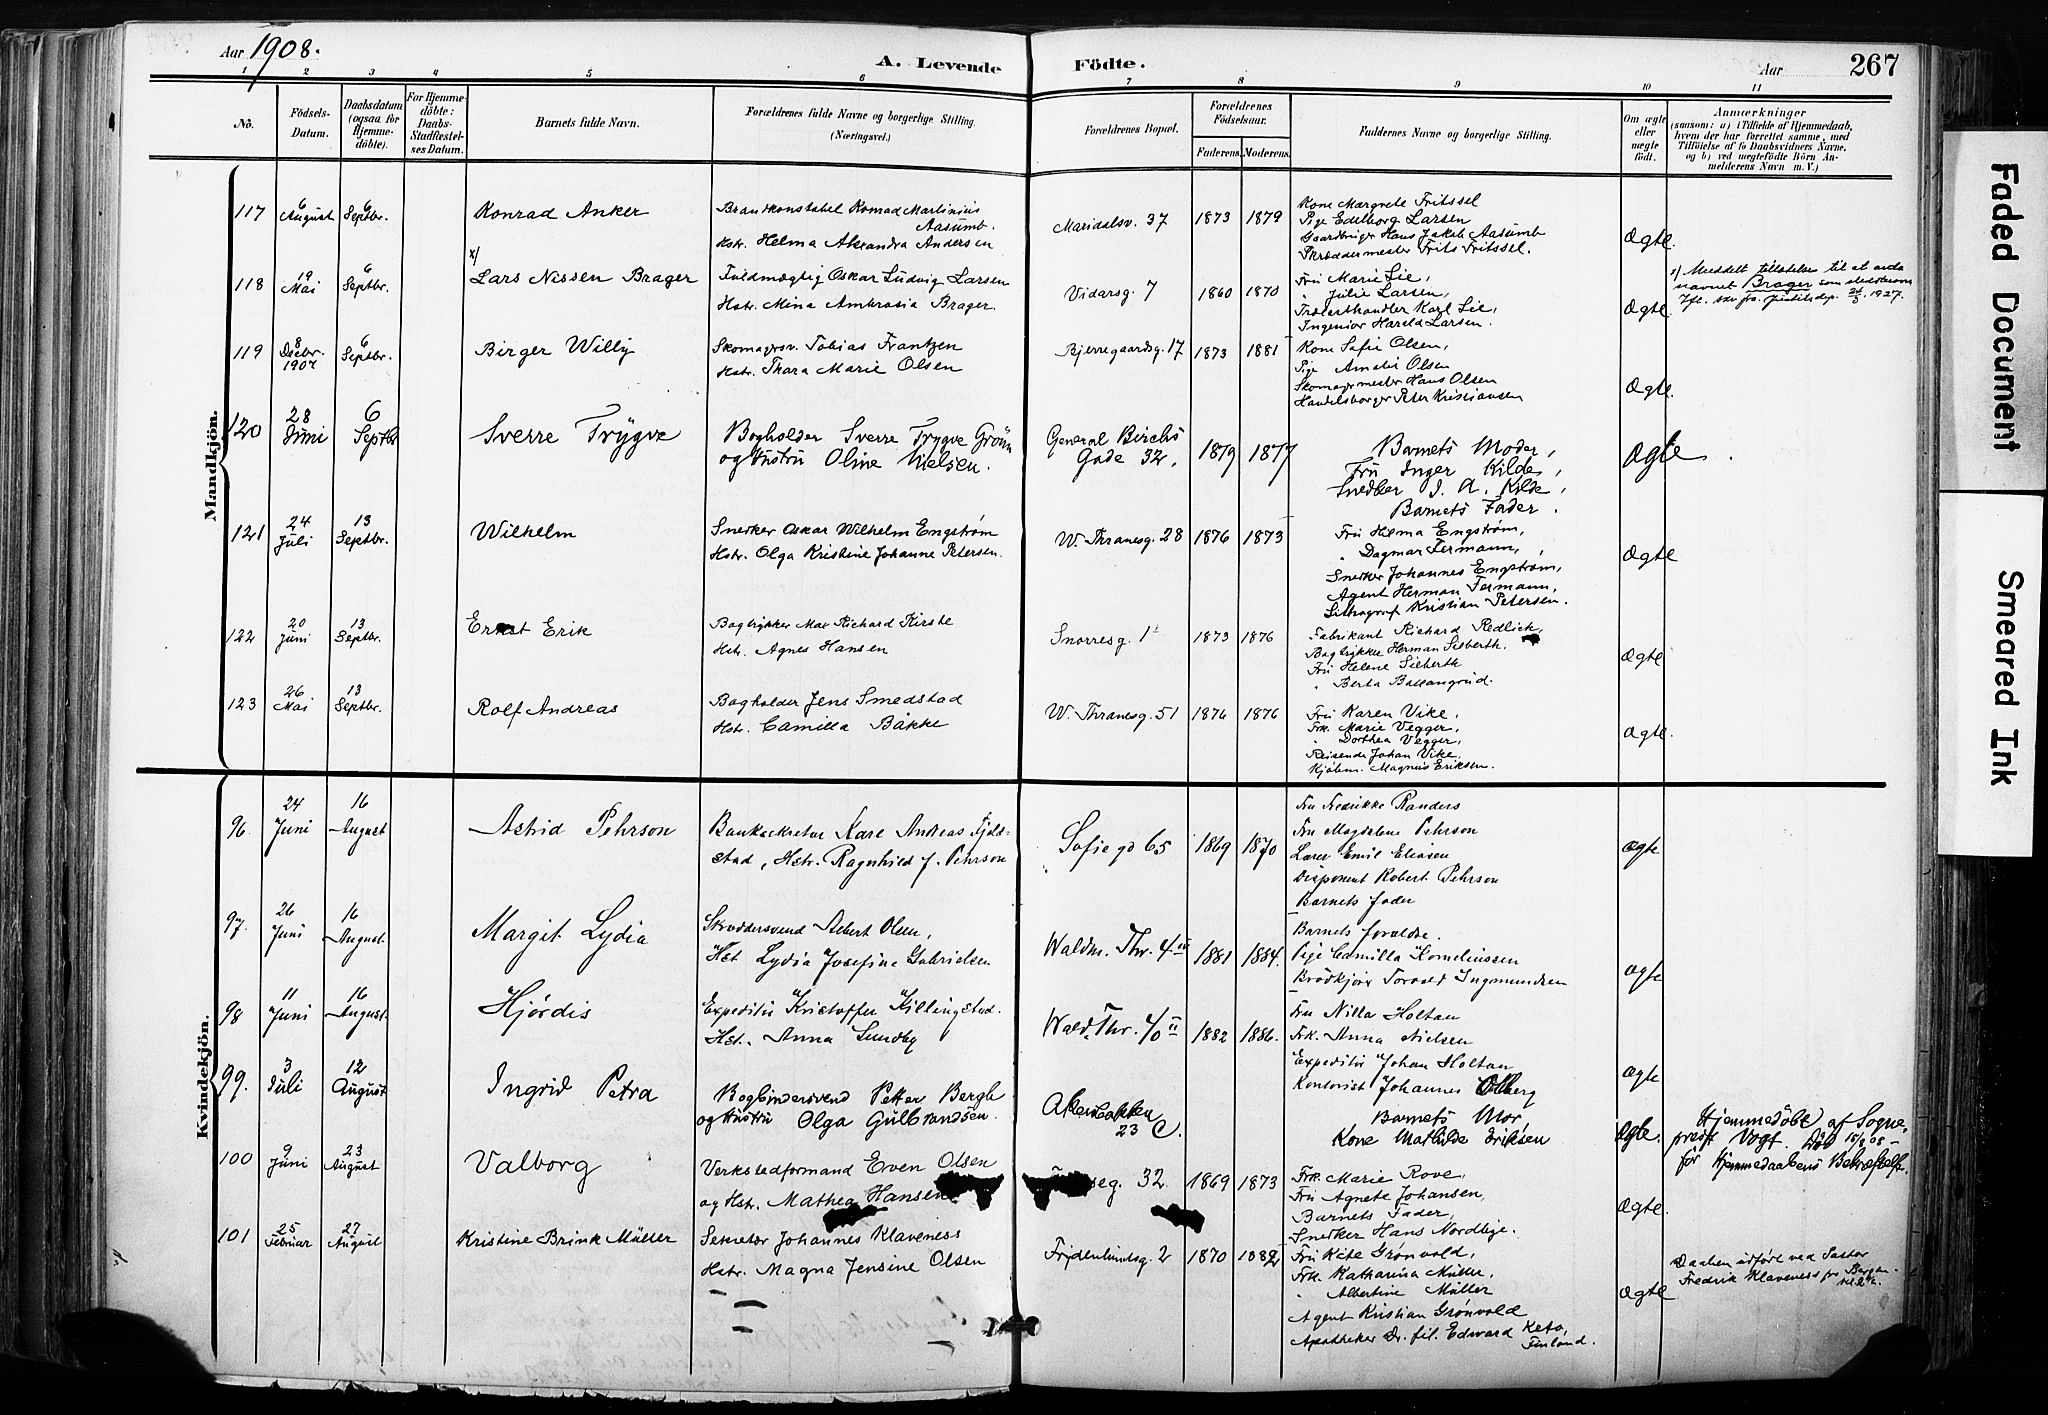 Aar 1908.
A. Levende Födte.
Aar 267
1 2 3 4 5 6 7 8 9 10 11
No.
Födsels-
Datum.
Daabsdatum
(ogsaa for
Hjemme-
döbte).
For Hjemme-
döbte:
Daabs-
Stadfæstel-
ses Datum.
Barnets fulde Navn.
Forældrenes fulde Navne og borgerlige Stilling.
(Næringsvei.)
Forældrenes Bopæl.
Forældrenes
Födselsaar.
Faderens. Moderens.
Faddernes Navne og borgerlige Stilling.
Om ægte
eller
uægte
födt.
Anmærkninger
(saasom: a) i Tilfælde af Hjemmedaab,
hvem der har forrettet samme, med
Tilföielse af to Daabsvidners Navne,
og b) ved uægtefödte Börn An-
melderens Navn m. V.)
Mandkjön.
117
6
August
6
Septbr.
Konrad Anker
Brandkonstabel Konrad Martinius
Aasumb.
Hstr. Helma Alexandra Andersen
Maridalsv. 37
1873 1879
Kone Margrete Fritssel
Pige Edelborg Larsen
Gaardbruger Hans Jakob Aasumb
Skræddermester Frits Fritssel.
Ægte.
118
19
Mai
6
Septbr.
x)
Lars Nissen Brager
Fuldmægtig Oskar Ludvig Larsen
Hstr. Mina Ambrosia Brager.
Vidarsg. 7
1860 1870
Fru Marie Lie,
" Julie Larsen,
Trælasthandler Karl Lie,
Ingeniør Harald Larsen.
Ægte.
x) Meddelt tillatelse til at
navnet Brager som slektsnavn
1927.
119
8
Decbr.
1907
6
Septbr.
Birger Willy
Skomagersv. Tobias Frantzen
Hstr. Thara Marie Olsen
Bjerregaardsg. 17
1873 1881
Kone Sofie Olsen,
Pige Amalie Olsen
Skomagermester Hans Olsen
Handelsborger Peter Kristiansen
Ægte.
120
28
Juni
6
Septbr
Sverre Trygve
Bogholder Sverre Trygve Grøm
og Hustru Oline Nielsen.
General Birchs
Gade 32.
1879 1877
Barnets Moder,
Fru Inger Kilde,
Snedker J. A. Kilde,
Barnets Fader.
Ægte.
121
24
Juli
13
Septbr.
Wilhelm
Snerker Oskar Wilhelm Engstrøm
Hstr. Olga Kristine Johanne Petersen.
W. Thranesg. 28
1876 1873
Fru Hilma Engstrøm,
" Dagmar Fermann,
Snerker Johannes Engstrøm,
Agent Herman Fermann,
Lithograf Kristian Petersen.
Ægte
122
20
Juni
13
Septbr.
Ernst Erik
Bogtrykker Max Richard Kirste
Hstr. Agnes Hansen
Snorresg. 1
1873 1876
Fabrikant Richard Redlich,
Bogtrykker Herman Sieberth,
Fru Helene Sieberth
" Berta Ballangrud.
Ægte
123
26
Mai
13
Septbr.
Rolf Andreas
Bogholder Jens Smedstad
Hstr. Camilla Bakke
W. Thranesg. 51
1876 1876
Fru Karen Vike,
Frk. Marie Vegger,
" Dorthea Vegger,
Reisende Johan Vike,
Kjøbm. Magnus Eriksen.
Ægte.
Kvindekjön.
96.
24
Juni
16
August
Astrid Pehrson
Banksekretær Kare Andreas Fjeld-
stad, Hstr. Ragnhild J. Pehrson
Sofie gd 65
1869 1870
Fru Fredrikke Randers
Fru Magdalene Pehrson
Lærer Emil Eliasen
Disponent Robert Pehrson
Barnets fader
Ægte
97.
26
Juni
16
August
Margit Lydia
Skræddersvend Albert Olsen,
Hst Lydia Josefine Gabrielsen
Waldm. Thr. 4
1881 1884.
Barnets forældre.
Pige Camilla Korneliussen
Brödkjörer Torvald Ingmundsen
Ægte
98
11
Juni
16
August.
Hjördis
Expeditör Kristoffer Killingstad.
Hst. Anna Sundby
Wald. Thr. 40 II
1882 1886.
Fru Nilla Holtan
Frk. Anna Nielsen
Expeditör Johan Holtan
Kontorist Johannes Olberg
Ægte
99.
3
Juli
12
August
Ingrid Petra
Bogbindersvend Petter Bergh
og Hustru Olga Gulbrandsen.
Akersbakken
23 C.
Barnets Mor,
Kone Mathilde Eriksen
Ægte.
Hjemmedöbt af Sogne-
præst Vogt. Död 15/8 08 –
för Hjemmedaabens Bekræftelse.
100
9
Juni
23
August
Valborg
Verkstedformand Even Olsen
og Hstr. Mathea Hansen
32
1869 1873
Frk. Marie Rove,
Fru Agnete Johansen,
Barnets Fader,
Snerker Hans Nordbye.
Ægte.
101
25
Februar
27
August
Kristine Brink Müller
Sekretær Johannes Klaveness
Hstr. Magna Jensine Olsen
Frydenlundsg. 2
1870 1882
Fru Kite Grønvold,
Frk. Katharina Müller,
" Albertine Müller
Agent Kristian Grønvold
Apotheker Dr. fil. Edward Keto,
Finland.
Ægte
Daaben udført ved Pastor
Fredrik Klaveness fra Bergen.
Faded Document
Smeared Ink